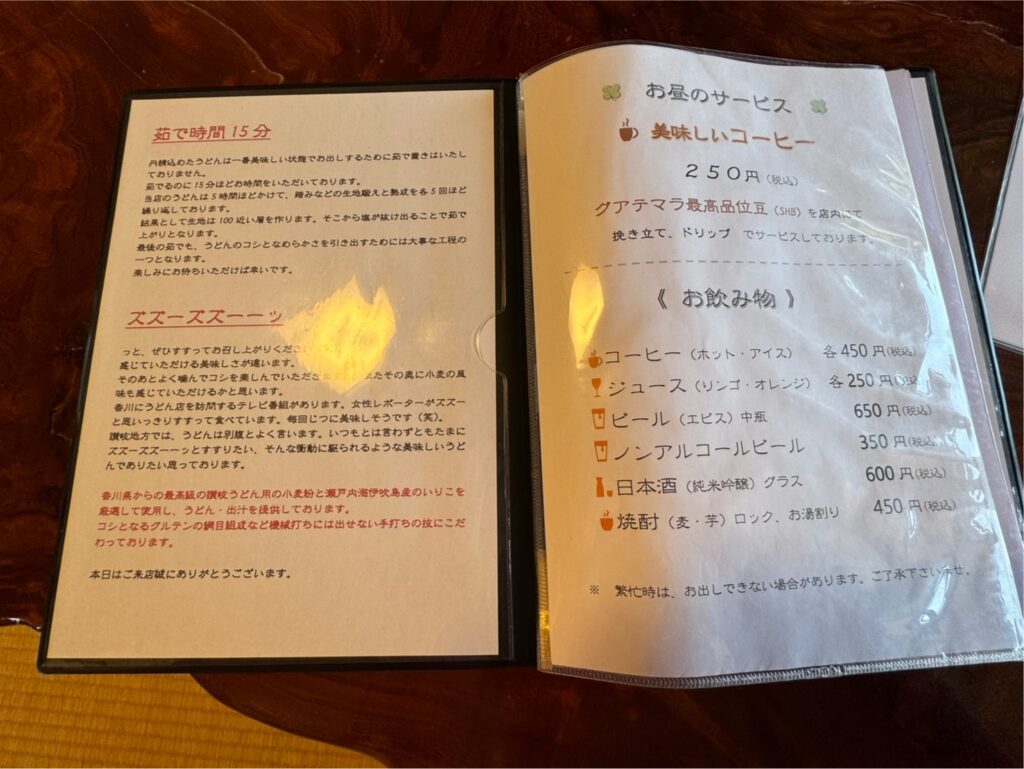 茹で時間 15 分
丹積込めたうどんは一番美味しい状態でお出しするために茹で置きはいたし
ておりません。
茹でるのに 15 分ほどお時間をいただいております。
当店のうどんは 5 時間ほどかけて、踏みなどの生地鍛えと熟成を各 5 回ほど
繰り返しております。
結果として生地は 100 近い層を作ります。そこから塩が抜け出ることで茹で
上がりとなります。
最後の茹でも、うどんのコシとなめらかさを引き出すためには大事な工程の
一つとなります。
楽しみにお待ちいただけば幸いです。
ズズーズズーーッ
っと、ぜひすすってお召し上がりくださ
感じていただける美味しさが違います。
そのあとよく噛んでコシを楽しんでいただきま またその奥に小麦の風
味も感じていただけるかと思います。
香川にうどん店を訪問するテレビ番組があります。女性レポーターがズズー
と思いっきりすすって食べています。毎回じつに美味しそうです（笑）。
讃岐地方では、うどんは別腹とよく言います。いつもとは言わずともたまに
ズズーズズーーッとすすりたい、そんな衝動に駆られるような美味しいうど
んでありたい思っております。
香川県からの最高級の讃岐うどん用の小麦粉と瀬戸内海伊吹島産のいりこを
厳選して使用し、うどん・出汁を提供しております。
コシとなるグルテンの網目組成など機械打ちには出せない手打ちの技にこだ
わっております。
本日はご来店誠にありがとうございます。
お昼のサービス
美味しいコーヒー
２５０円（税込）
グアテマラ最高品位豆（SHB）を店内にて
挽き立て、ドリップ でサービスしております。
《 お飲み物 》
コーヒー（ホット・アイス） 各 450 円（税込）
ジュース（リンゴ・オレンジ） 各 250 円（税込）
ビール（エビス）中瓶 650 円（税込）
ノンアルコールビール 350 円（税込）
日本酒（純米吟醸）グラス 600 円（税込）
焼酎（麦・芋）ロック、お湯割り 450 円（税込）
※ 繁忙時は、お出しできない場合があります。ご了承下さいませ。